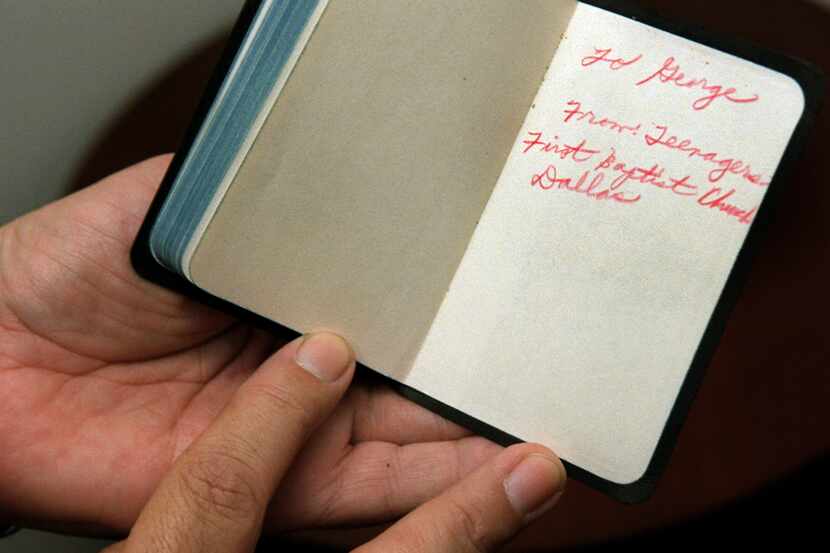 To George
From: Teenagers
First Baptist Church
Dallas